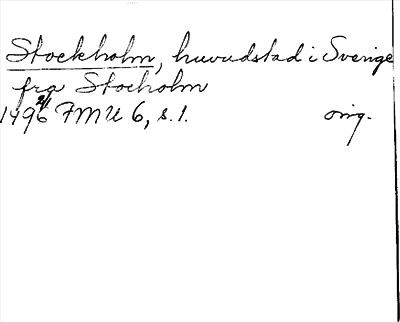 Stockholm, huvudstad i Sverige
fra Stocholm
1496 2/1 FMU 6, s. 1. orig.